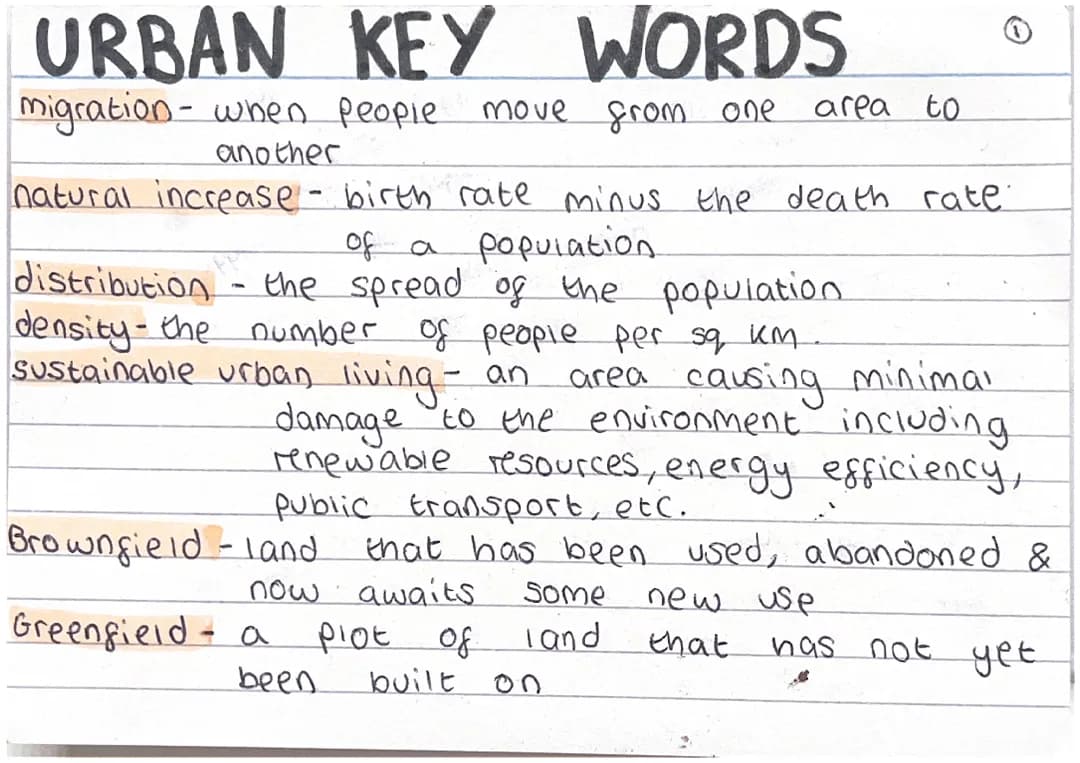 URBAN KEY WORDS 1
migration - when people move from one area to
another
natural increase - birth rate minus the death rate
of a population
distribution - the spread of the population
density - the number of people per sq km.
sustainable urban living - an area causing minimal
damage to the environment including
renewable resources, energy efficiency,
public transport, etc.
Brownfield - land that has been used, abandoned &
now awaits some new use
Greenfield - a plot of land that has not yet
been built on